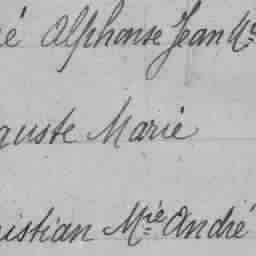 é Alphonse Jean M
guste Marie
istian Mie André